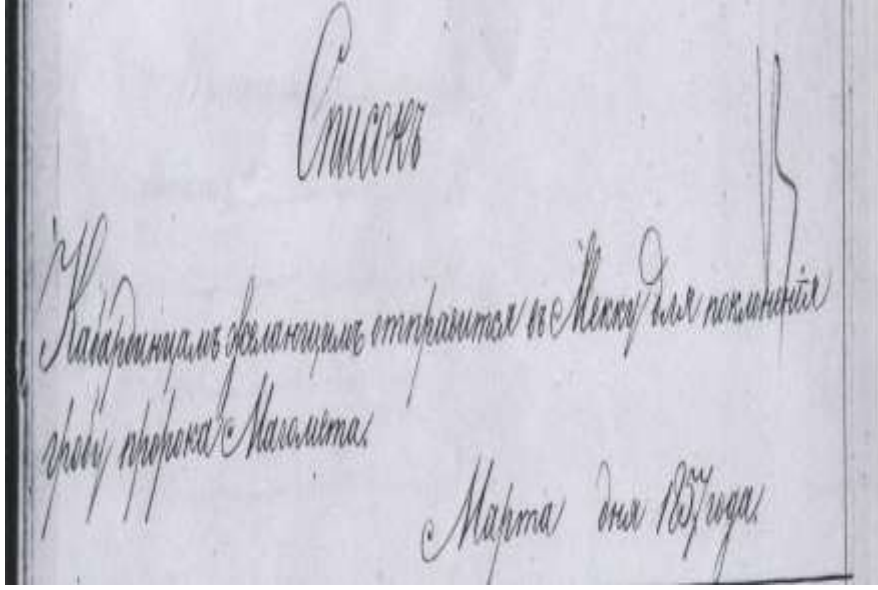 Списокъ
Кабардинцамъ желающимъ отправится въ Мекку для поклоненія
гробу пророка Магомета.
Марта дня 1857 года.